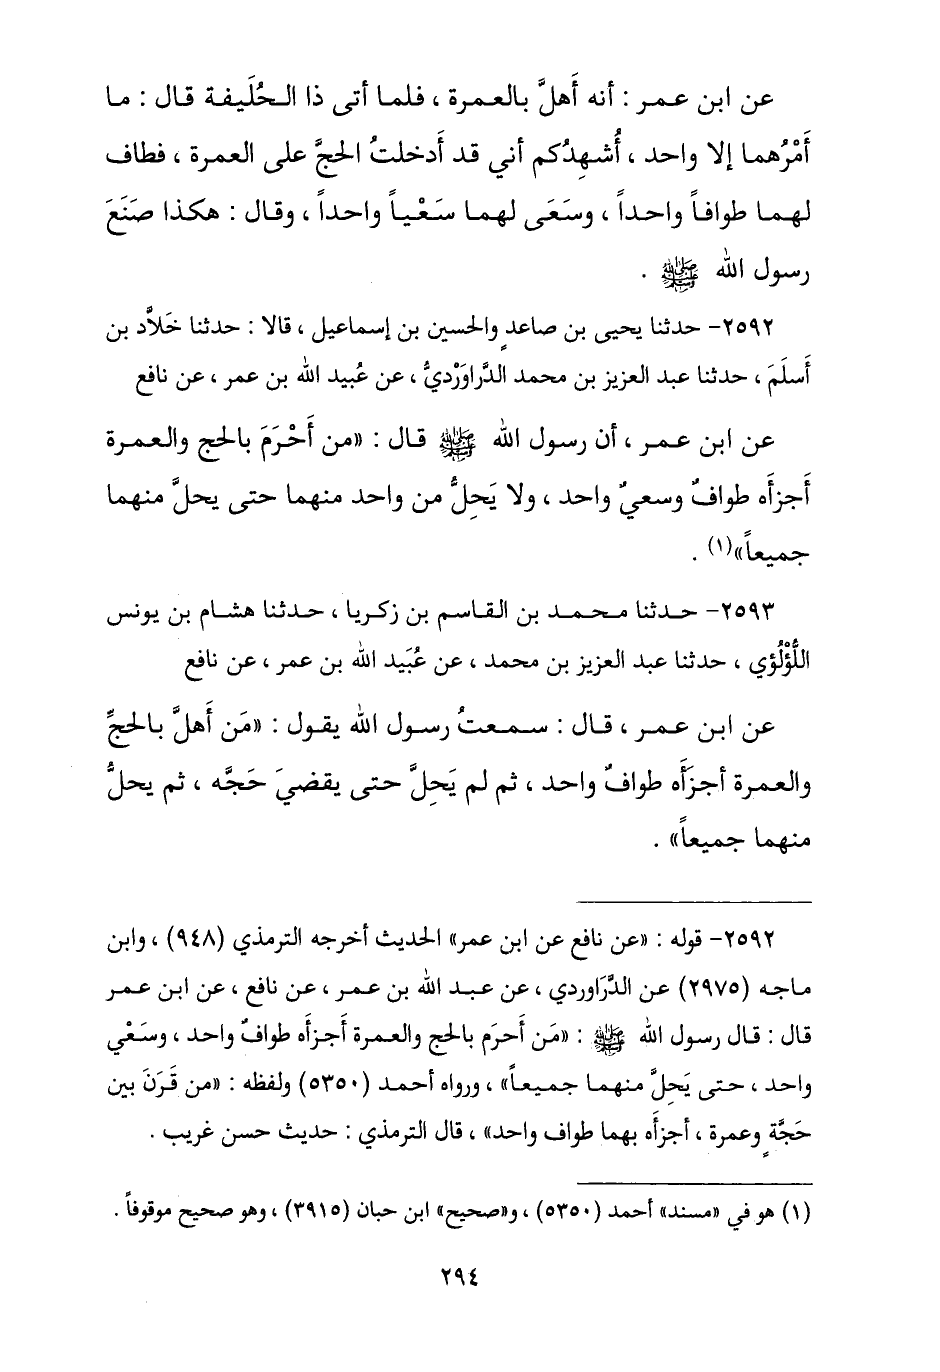 عن ابن عمر : أنه أَهلَّ بالعمرة ، فلما أتى ذا الحُلَيفة قال : ما
أَمْرُهما إلا واحد ، أُشهِدُكم أني قد أَدخلتُ الحجَّ على العمرة ، فطاف
لهما طوافاً واحداً ، وسَعَى لهما سَعْياً واحداً ، وقال : هكذا صَنَعَ
رسول الله ﷺ .
٢٥٩٢- حدثنا يحيى بن صاعدٍ والحسين بن إسماعيل ، قالا : حدثنا خَلاَّد بن
أَسلَمَ ، حدثنا عبد العزيز بن محمد الدَّراوَرْديُّ ، عن عُبيد الله بن عمر ، عن نافع
عن ابن عمر ، أن رسول الله ﷺ قال : «من أَحْرَمَ بالحج والعمرة
أَجزأَه طوافٌ وسعيٌ واحد ، ولا يَحِلُّ من واحد منهما حتى يحلَّ منهما
جميعاً»(١) .
٢٥٩٣- حدثنا محمد بن القاسم بن زكريا ، حدثنا هشام بن يونس
اللُّؤْلُؤي ، حدثنا عبد العزيز بن محمد ، عن عُبَيد الله بن عمر ، عن نافع
عن ابن عمر ، قال : سمعتُ رسول الله يقول : «مَن أَهلَّ بالحجِّ
والعمرة أجزَأَه طوافٌ واحد ، ثم لم يَحِلَّ حتى يقضيَ حَجَّه ، ثم يحلُّ
منهما جميعاً» .
٢٥٩٢- قوله : «عن نافع عن ابن عمر» الحديث أخرجه الترمذي (٩٤٨) ، وابن
ماجه (٢٩٧٥) عن الدَّرَاوردي ، عن عبد الله بن عمر ، عن نافع ، عن ابن عمر
قال : قال رسول الله ﷺ : «مَن أَحرَم بالحج والعمرة أَجزأَه طوافٌ واحد ، وسَعْي
واحد ، حتى يَحِلَّ منهما جميعاً» ، ورواه أحمد (٥٣٥٠) ولفظه : «من قَرَنَ بين
حَجَّةٍ وعمرة ، أجزأَه بهما طواف واحد» ، قال الترمذي : حديث حسن غريب .
(١) هو في «مسند» أحمد (٥٣٥٠) ، و«صحيح» ابن حبان (٣٩١٥) ، وهو صحيح موقوفاً .
٢٩٤